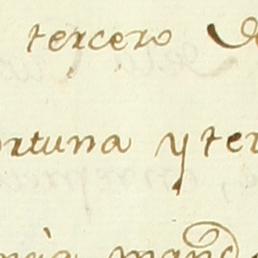 tercero
ortuna y ter
ncia man